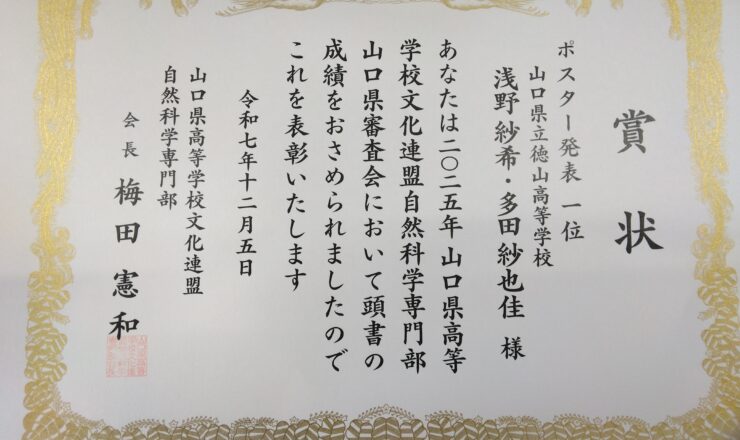 賞状
ポスター発表 一位
山口県立徳山高等学校
浅野紗希・多田紗也佳 様
あなたは二〇二五年 山口県高等
学校文化連盟自然科学専門部
山口県審査会において頭書の
成績をおさめられましたので
これを表彰いたします
令和七年十二月五日
山口県高等学校文化連盟
自然科学専門部
会長 梅田憲和